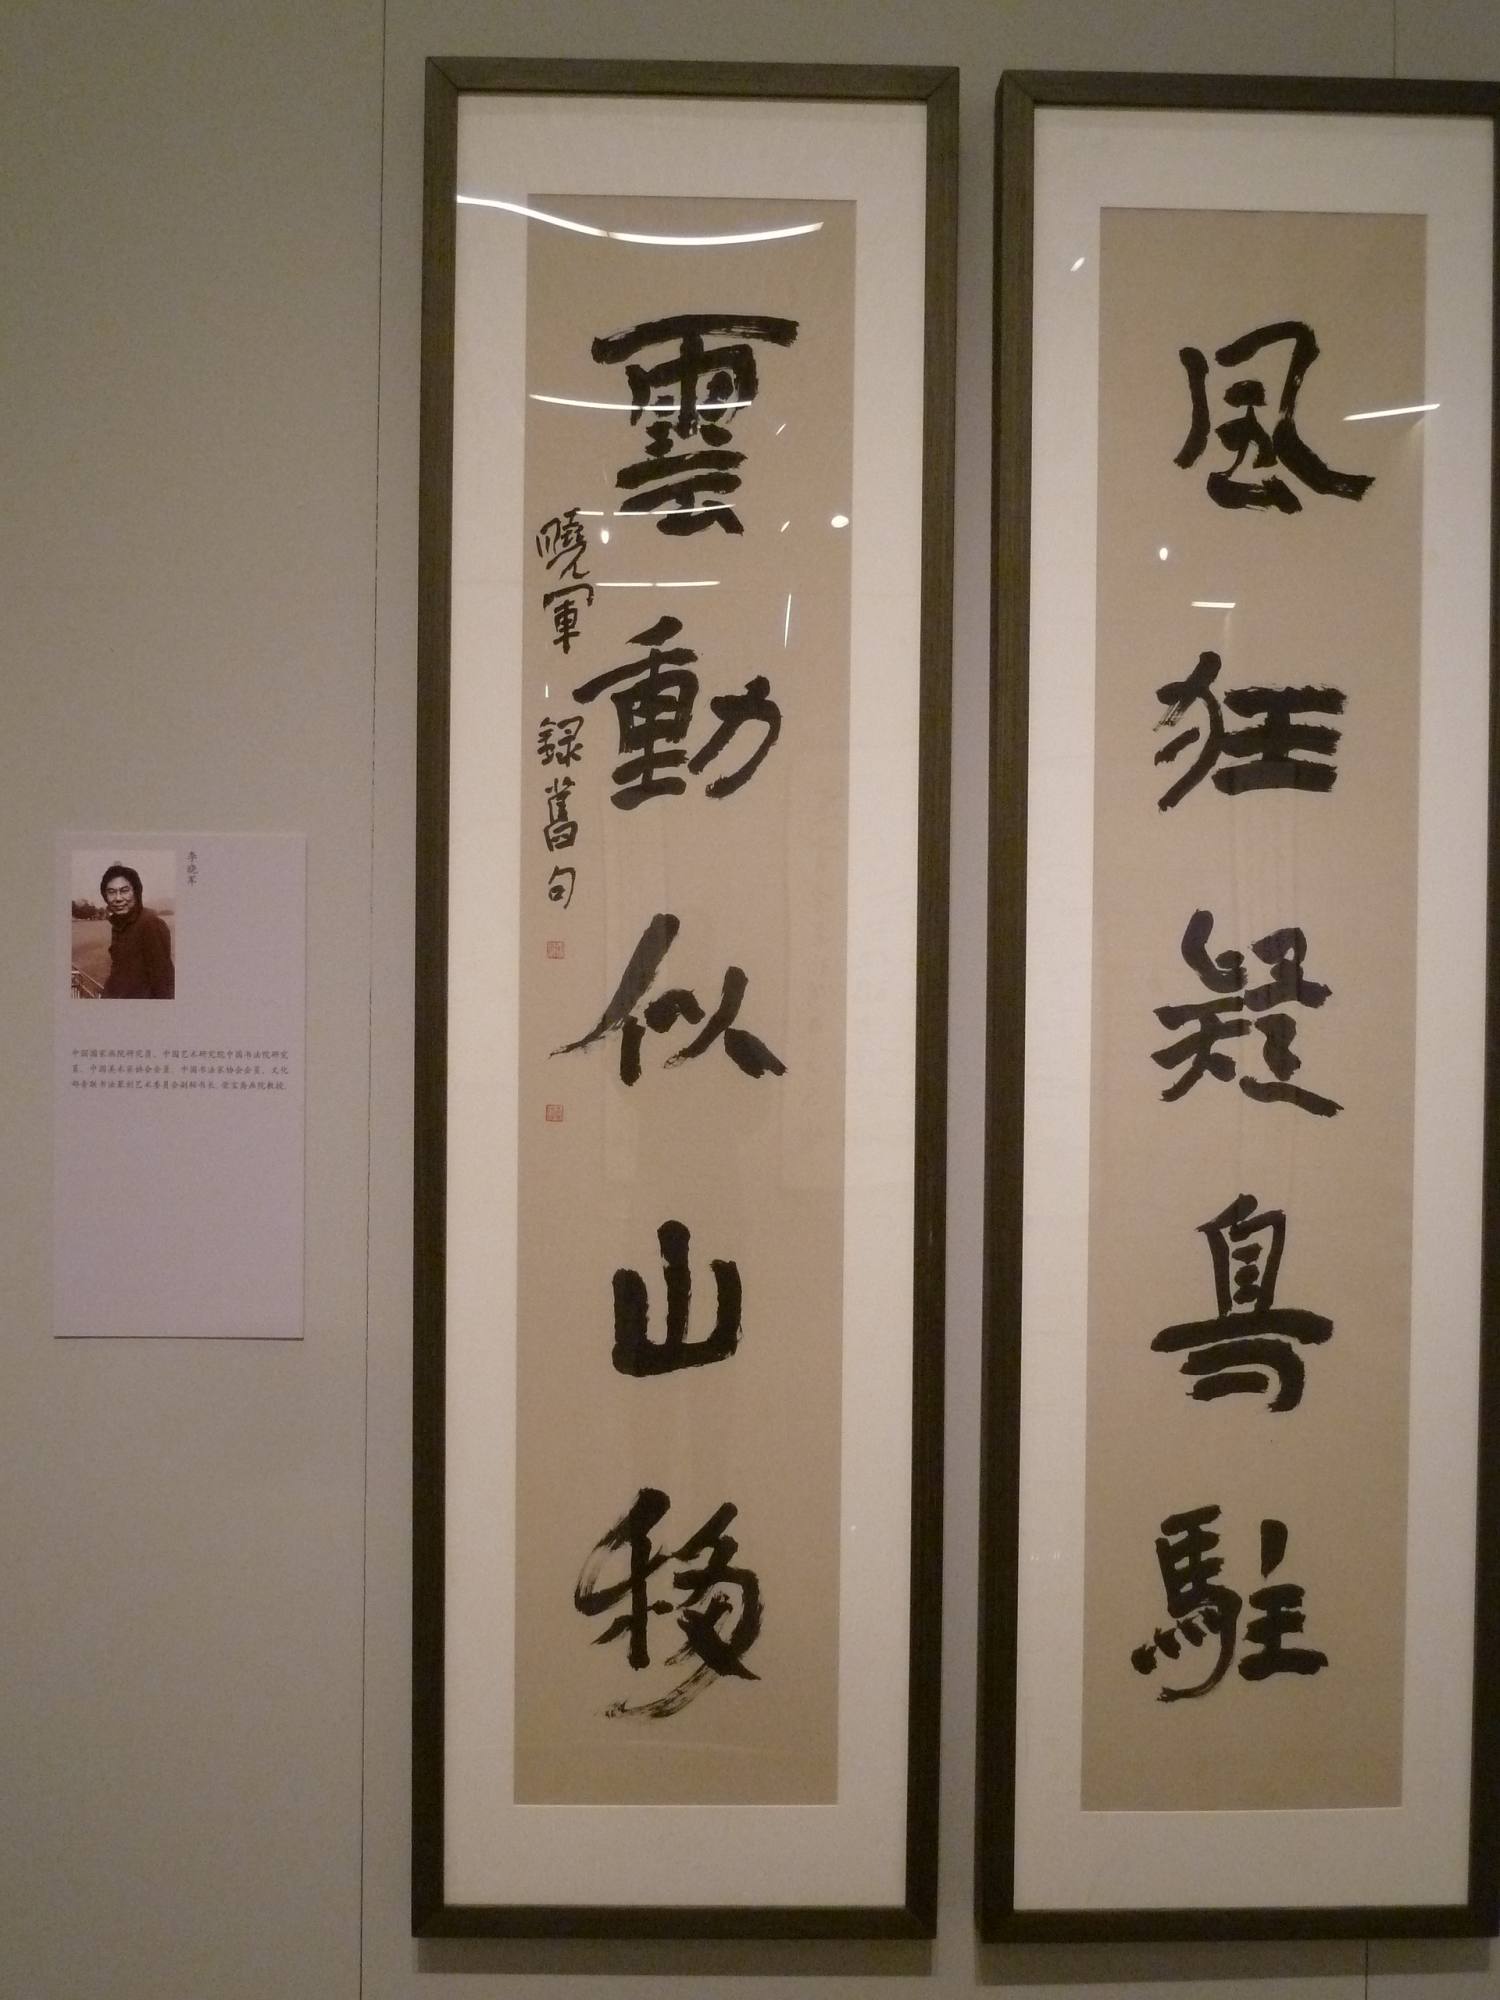 風狂疑鳥駐
雲動似山移
曉軍 録舊句
李晓军
中国国家画院研究员、中国艺术研究院中国书法院研究
员、中国美术家协会会员、中国书法家协会会员、文化
部青联书法篆刻艺术委员会副秘书长、荣宝斋画院教授。